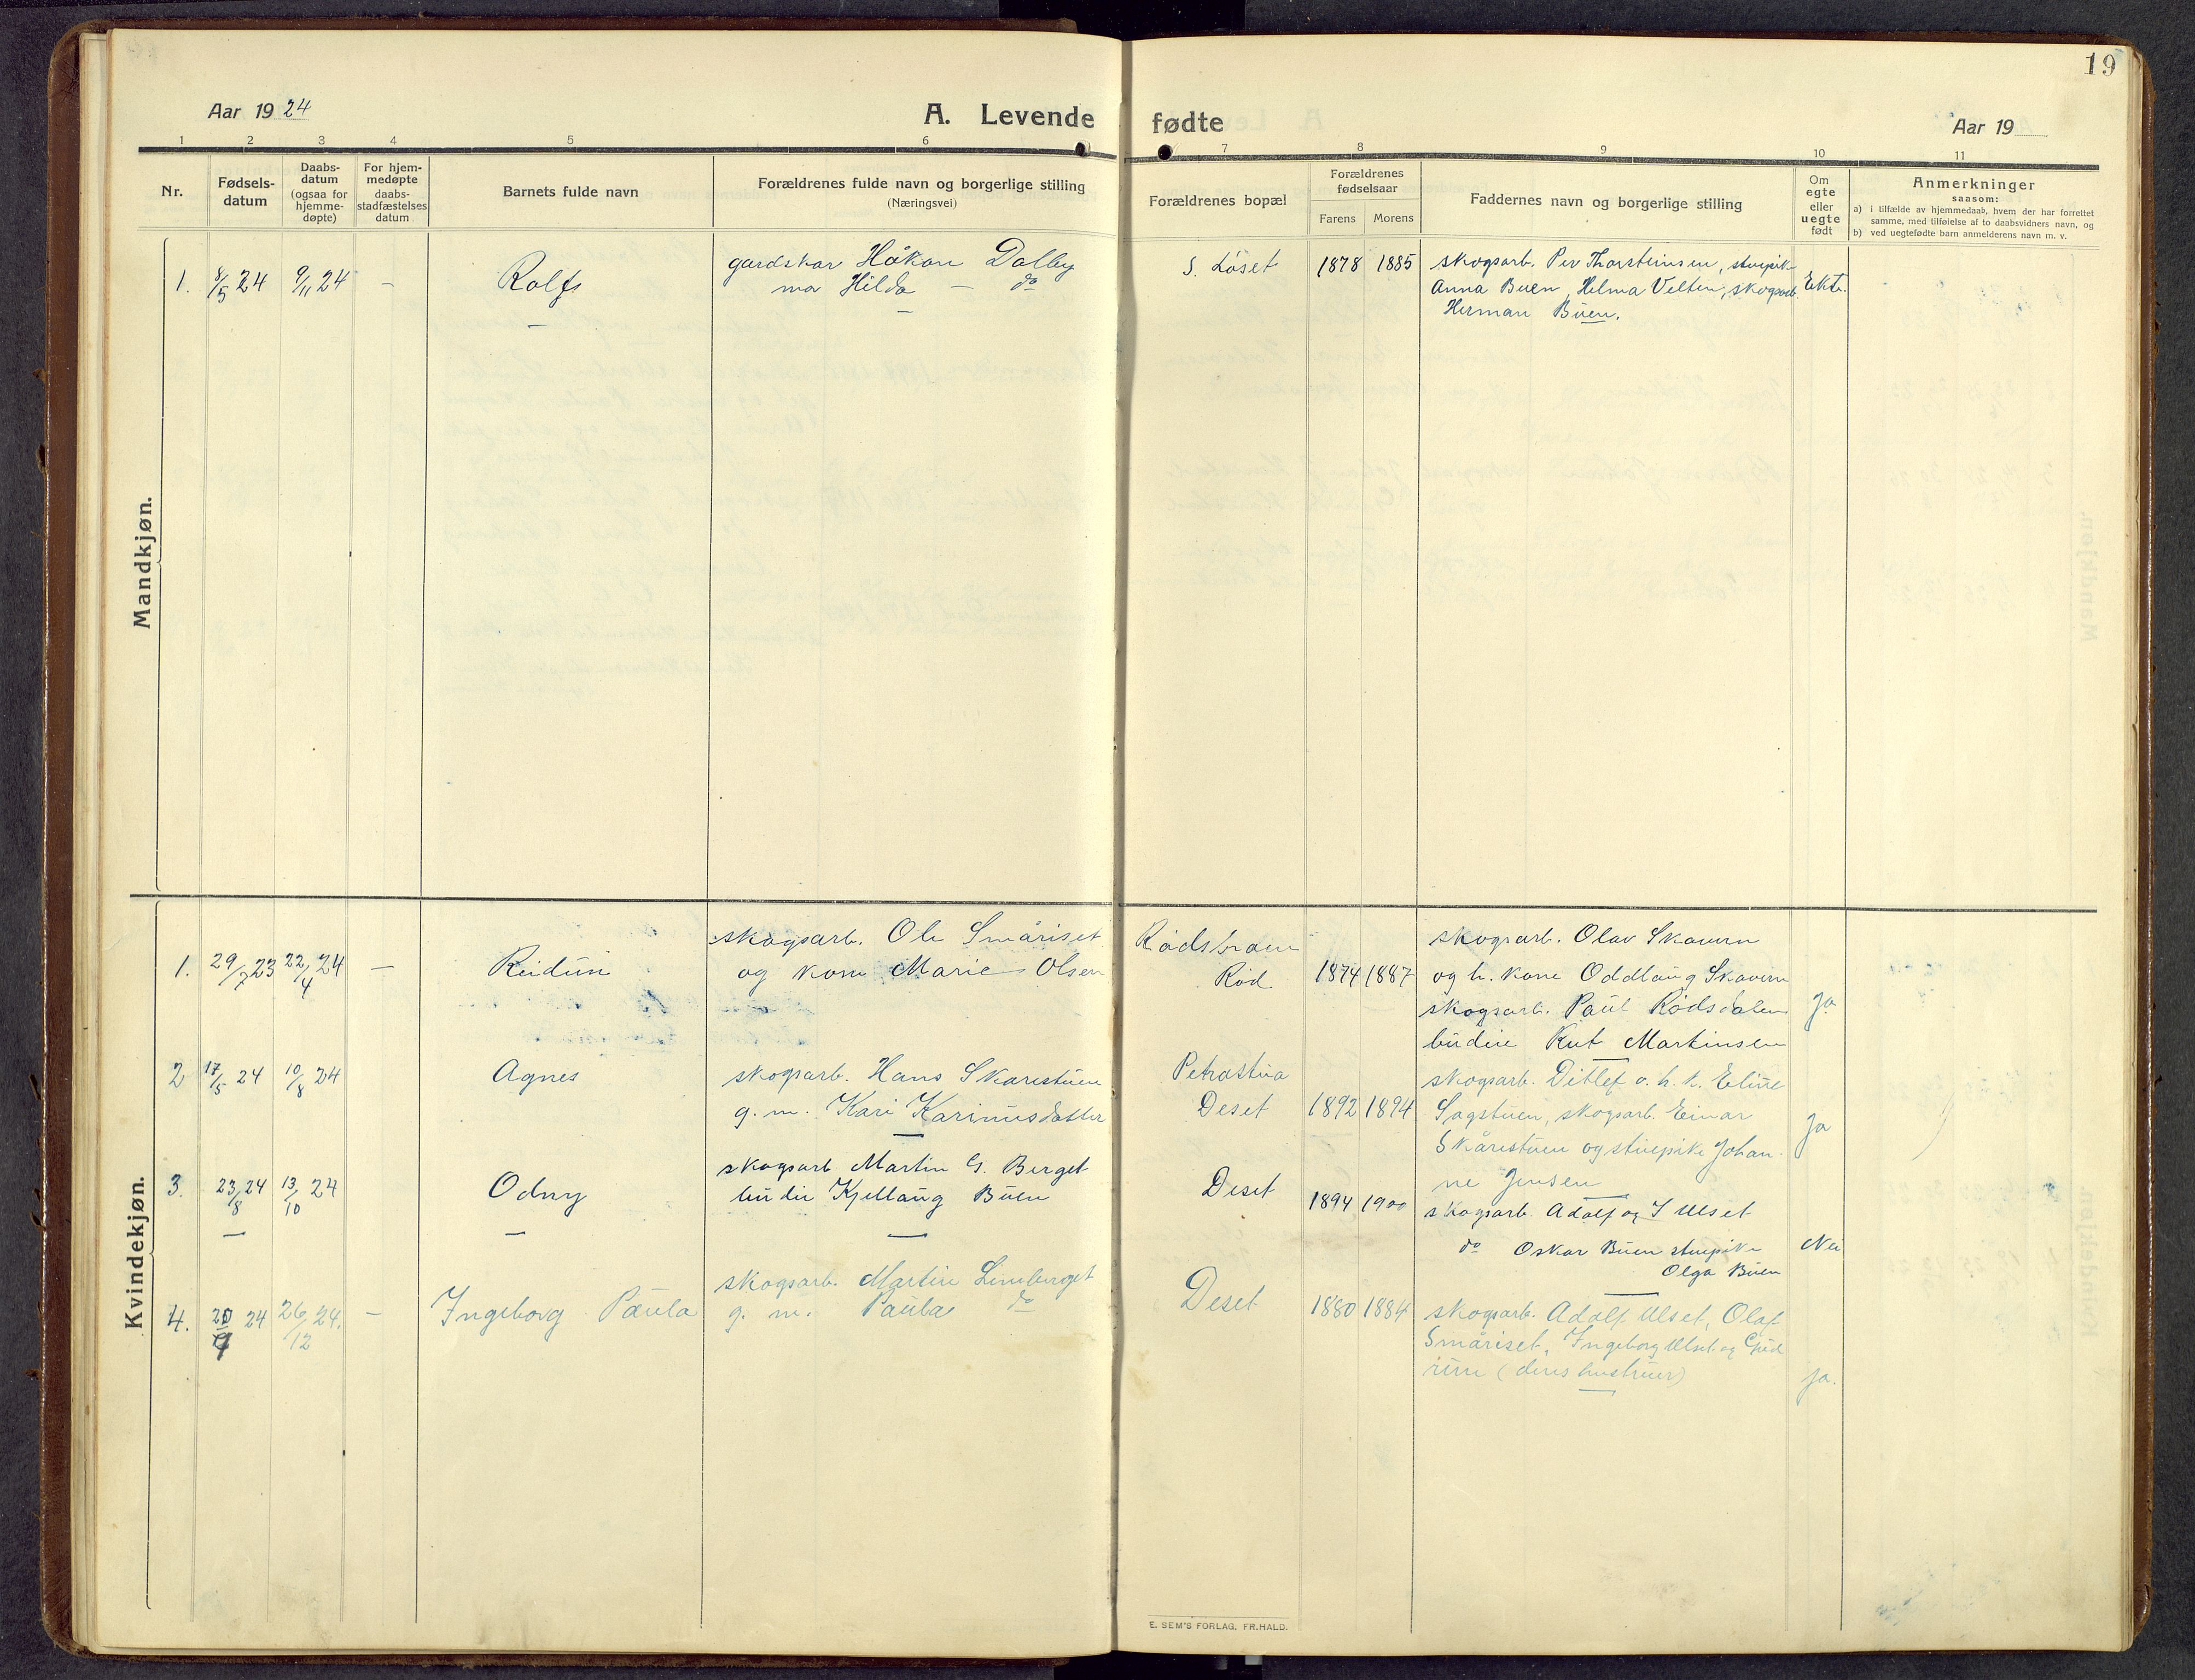 19
Aar 1924
A. Levende fødte
Aar 19
1 2 3 4 5 6 7 8 9 10 11
Nr.
Fødsels-
datum
Daabs-
datum
(ogsaa for
hjemme-
døpte)
For hjem-
medøpte
daabs-
stadfæstelses
datum
Barnets fulde navn
Forældrenes fulde navn og borgerlige stilling
(Næringsvei)
Forældrenes bopæl
Forældrenes
fødselsaar
Farens Morens
Faddernes navn og borgerlige stilling
Om
egte
eller
uegte
født
Anmerkninger
saasom:
a) i tilfælde av hjemmedaab, hvem der har forrettet
samme, med tilføielse af to daabsvidners navn, og
b) ved uegtefødte barn anmelderens navn m. v.
Mandkjøn.
1. 8/5 24 9/11 24 – Rolf
gardskar Håkon Dalby
mor Hilda – do
S. Löset 1878 1885
skogsarb. Per Thorsteinsen, stuepike
Anna Buen, Helma Velten, skogsarb.
Herman Buen.
Ekte.
Kvindekjøn.
1. 29/7 23 22/4 24 – Reidun
skogsarb. Ole Småriset
og kone Marie Olsen
Rød 1874 1887
skogsarb. Olav Skavern
og h. kone Oddlaug Skavern
skogsarb. Paul Rødsdalen
budeie Rut Martinsen
Ja
2 17/5 24 10/8 24 Agnes
skogsarb. Hans Skarestuen
g. m. Kari Karinusdatter
Petrastua
Deset 1892 1894
skogsarb. Ditlef o. h. k. Eline
Sagstuen, skogsarb. Einar
Skårestuen og stuepike Johan-
ne Jensen
Ja
3. 23/8 24 13/10 24 Odny
skogsarb Martin G. Berget
budeie Kjellaug Buen
Deset 1894 1900
skogsarb. Adolf og I Ulset
do Oskar Buen stuepike
Olga Buen
Nei
4. 20/9 24 26/12 24. – Ingeborg Paula
skogsarb. Martin Linberget
g. m. Paula do
Deset 1880 1884
skogsarb. Adolf Ulset, Olaf
Småriset, Ingeborg Ulset og Gud
run (deres hustruer)
Ja.
E. SEM'S FORLAG, FR.HALD.